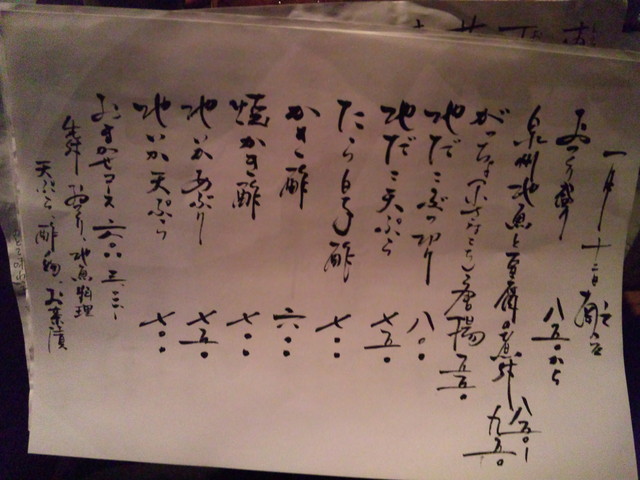 一月十二日献立
お造り盛り 八五〇から
泉州地魚と豆腐の煮付 八五〇〜九五〇
がっちょ 唐揚 五五〇
地だこぶつ切り 八〇〇
地だこ天ぷら 七五〇
たら白子酢 七〇〇
かき酢 六〇〇
焼かき酢 七〇〇
地いかあぶり 七五〇
地いか天ぷら 七〇〇
おまかせコース
先付 お造り、地魚料理
天ぷら、酢の物、お茶漬